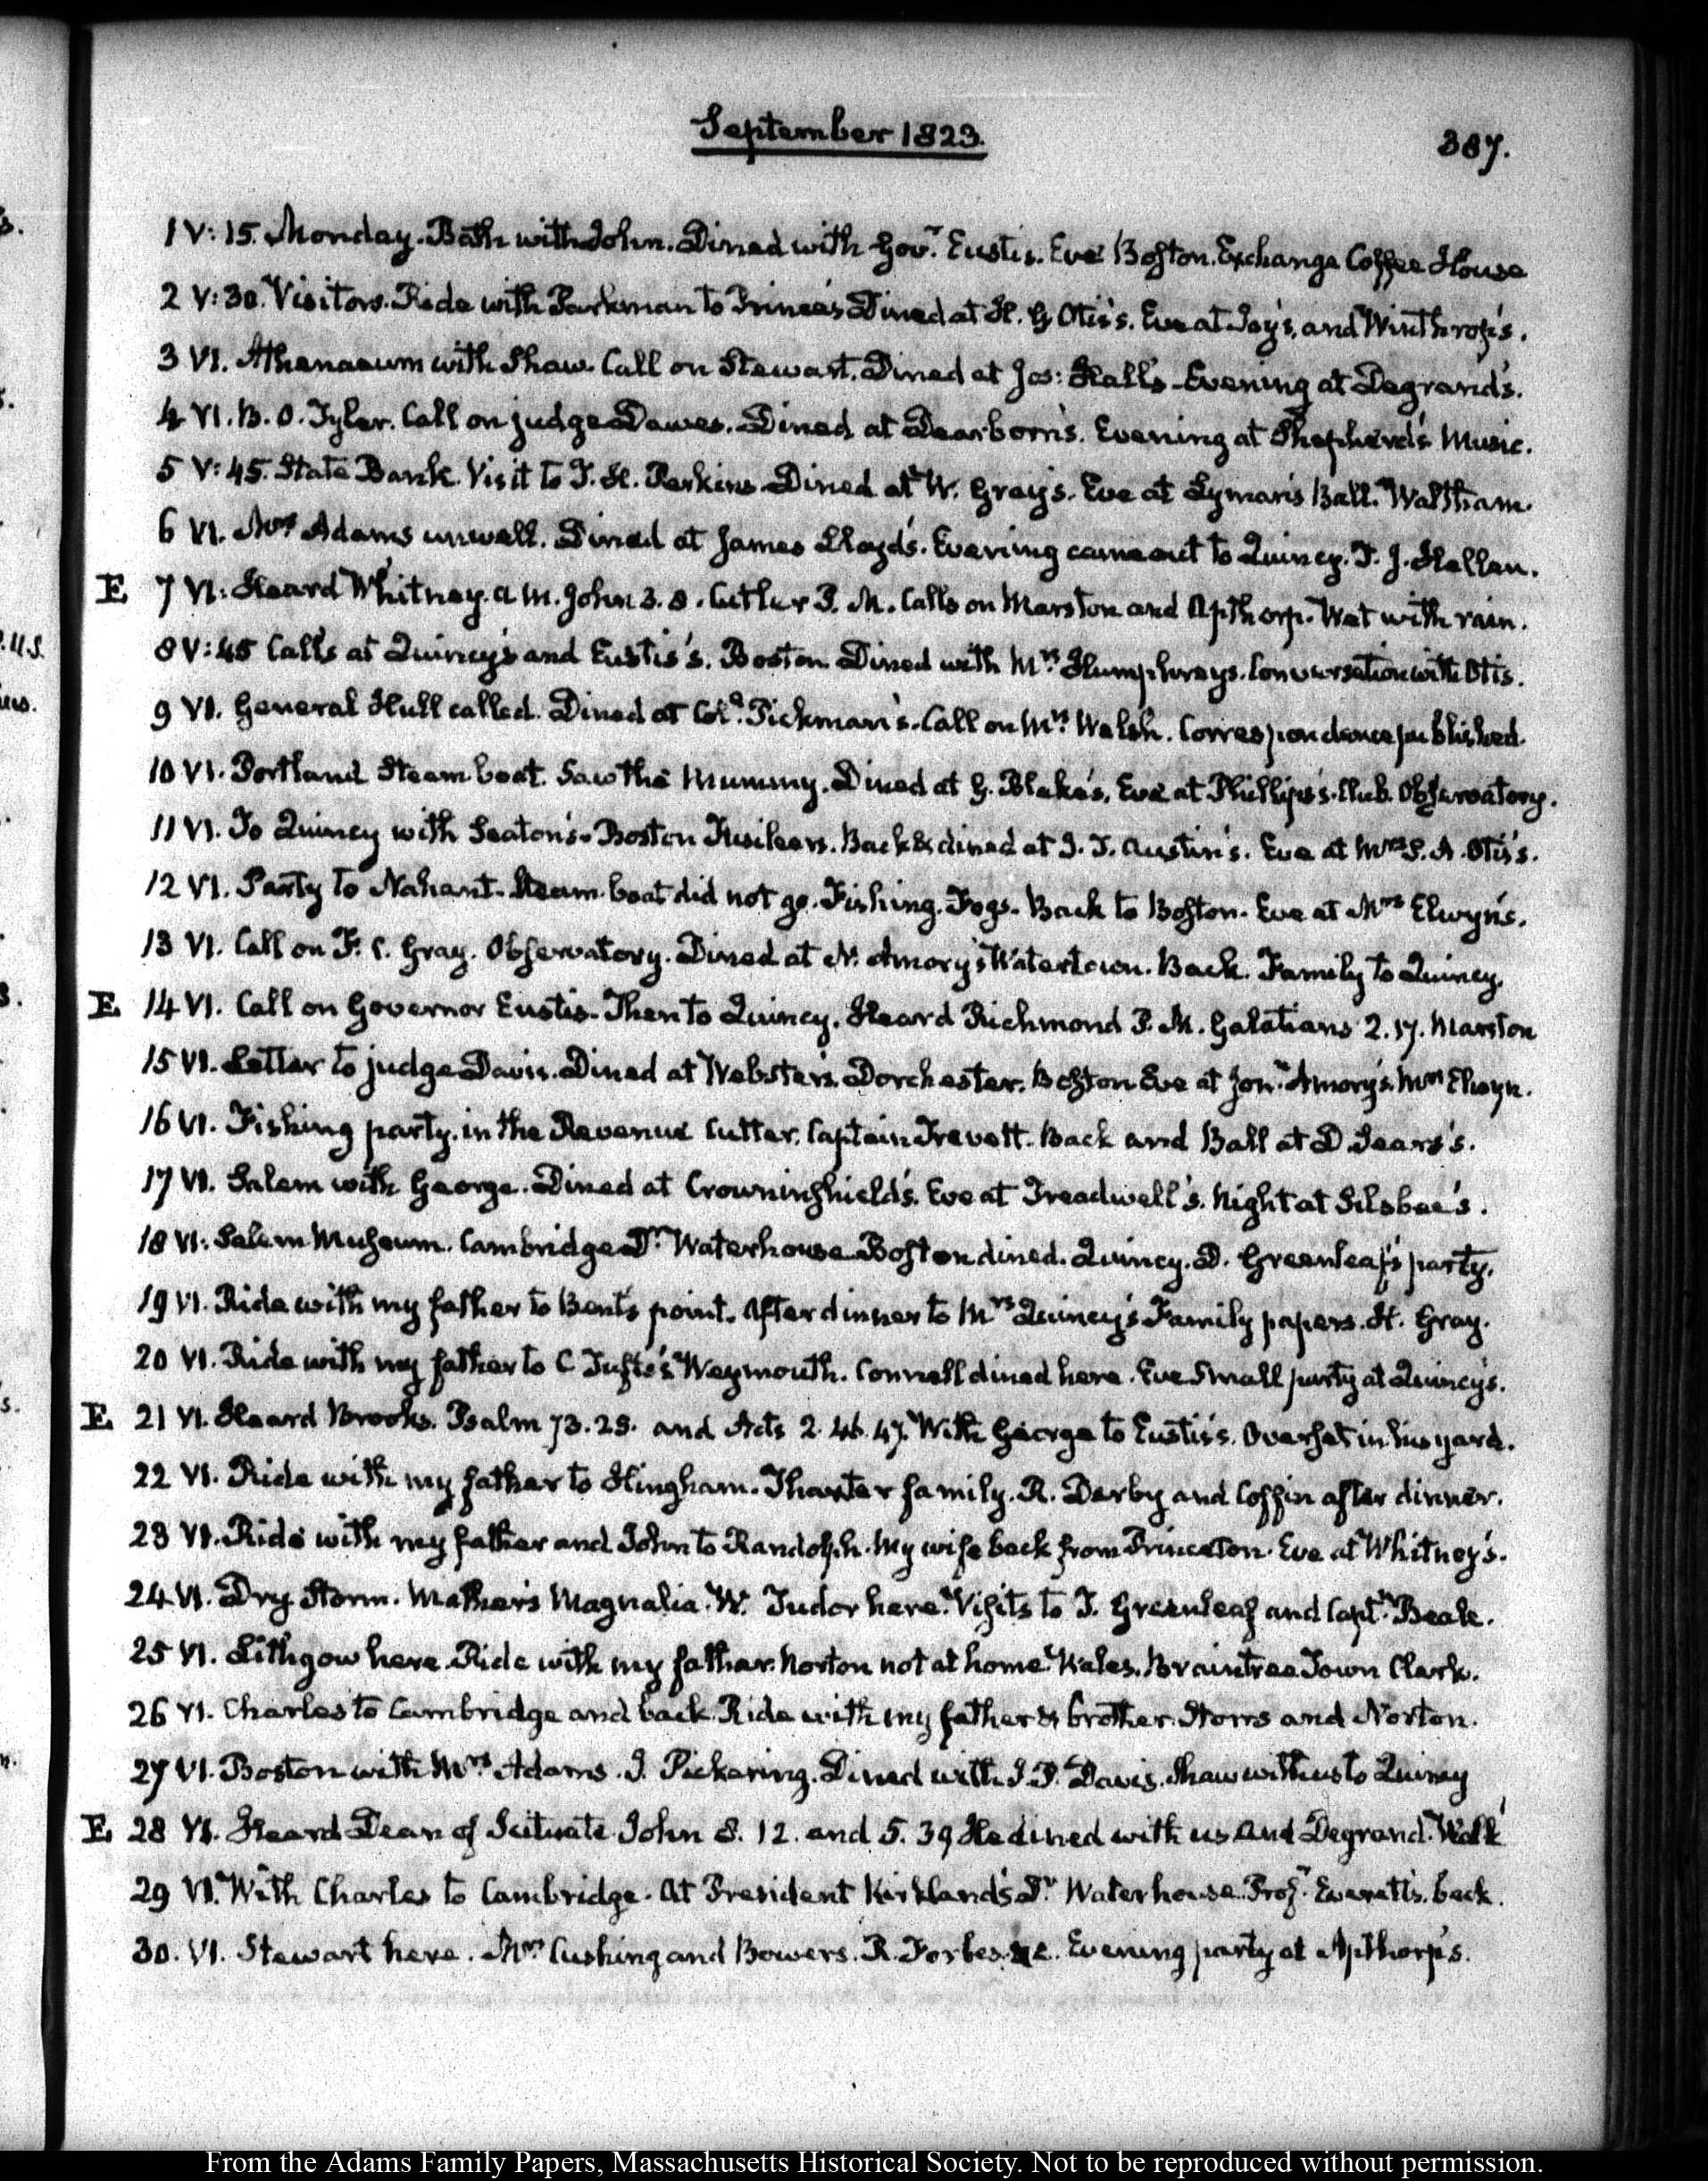 September 1823.
387.
1 V:15. Monday. Bath with John. Dined with Govr. Eustis. Eve Boston. Exchange Coffee House
2 V:30. Visitors. Ride with Parkman to Prince's Dined at H. G Otis's. Eve at Joy's, and Winthrop's.
3 VI. Athenaeum with Shaw. Call on Stewart. Dined at Jos: Hall's. Evening at Degrand's.
4 VI. B. O. Tyler. Call on judge Dawes. Dined at Dearborn's. Evening at Shepherd's Music.
5 V:45. State Bank. Visit to T. H. Perkins. Dined at W. Gray's. Eve at Lyman's Ball. Waltham.
6 VI. Mrs Adams unwell. Dined at James Lloyd's. Evening came out to Quincy. T. J. Hellen.
E 7 VI: Heard Whitney. A M. John 3. 8. Cutler P. M. Calls on Marston and Apthorp. Wet with rain.
8 V:45 Calls at Quincy's and Eustis's. Boston Dined with Mrs. Humphreys. Conversation with Otis.
9 VI. General Hull called. Dined at Coll. Pickman's. Call on Mrs. Welsh. Correspondence published.
10 VI. Portland Steam boat. Saw the Mummy. Dined at G. Blake's. Eve at Phillips's. Club. Observatory.
11 VI. To Quincy with Seaton's. Boston Fusileers. Back & dined at J. T. Austin's. Eve at Mrs S. A. Otis's.
12 VI. Party to Nahant. Steam-boat did not go. Fishing. Fogs. Back to Boston. Eve at Mrs Elwyn's.
13 VI. Call on F. C. Gray. Observatory. Dined at N. Amory's Watertown. Back. Family to Quincy.
E 14 VI. Call on Governor Eustis. Then to Quincy. Heard Richmond P. M. Galatians 2. 17. Marston
15 VI. Letter to judge Davis. Dined at Webster's. Dorchester. Boston Eve at Jon. Amory's. Mrs Elwyn.
16 VI. Fishing party. in the Revenue Cutter. Captain Trevett. Back and Ball at D. Sears's.
17 VI. Salem with George. Dined at Crowninshield's. Eve at Treadwell's. Night at Silsbee's.
18 VI: Salem Museum. Cambridge Dr. Waterhouse. Boston dined. Quincy. D. Greenleaf's party.
19 VI. Ride with my father to Bent's point. After dinner to Mrs Quincy's Family papers. H. Gray.
20 VI. Ride with my father to C Tufts's Weymouth. Connell dined here. Eve Small party at Quincy's.
E 21 VI. Heard Brooks. Psalm 73. 28. and Acts 2. 46. 47. With George to Eustis's. Overset in his yard.
22 VI. Ride with my father to Hingham. Thaxter family. R. Derby and Coffin after dinner.
23 VI. Ride with my father and John to Randolph. My wife back from Princeton. Eve at Whitney's.
24 VI. Dry. Storm. Mather's Magnalia. W. Tudor here. Visits to T. Greenleaf and Captn. Beale.
25 VI. Lithgow here. Ride with my father. Norton not at home. Wales. Braintree Town Clerk.
26 VI. Charles to Cambridge and back. Ride with my father & brother. Storrs and Norton.
27 VI. Boston with Mrs. Adams. J. Pickering. Dined with I. P. Davis. Shaw with us to Quincy
E 28 VI. Heard Dean of Scituate John 8. 12. and 5. 39 He dined with us and Degrand. Walk
29 VI. With Charles to Cambridge. At President Kirkland's Dr. Waterhouse. Profr. Everett's. back.
30. VI. Stewart here. Mrs. Cushing and Bowers. R. Forbes. Evening party at Apthorp's.
From the Adams Family Papers, Massachusetts Historical Society. Not to be reproduced without permission.